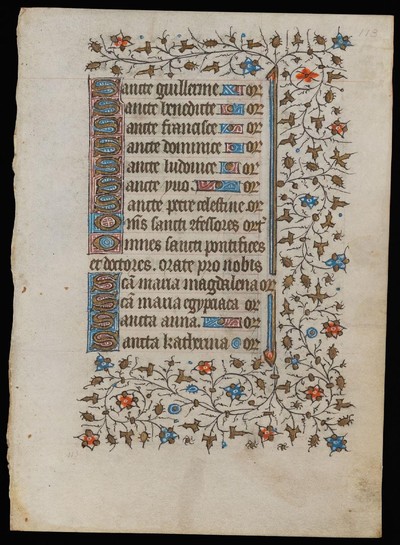 113
Sancte guillerme or
Sancte benedicte or
Sancte francisce or
Sancte dominice or
Sancte ludovice or
Sancte yvo. or
Sancte petre celestine or
Om̄s sancti ɔfessores or̄t
Omnes sancti pontifices
et doctores. orate pro nobis
Scā maria magdalena or
Scā maria egypciaca or
Sancta anna. or
Sancta katherina or